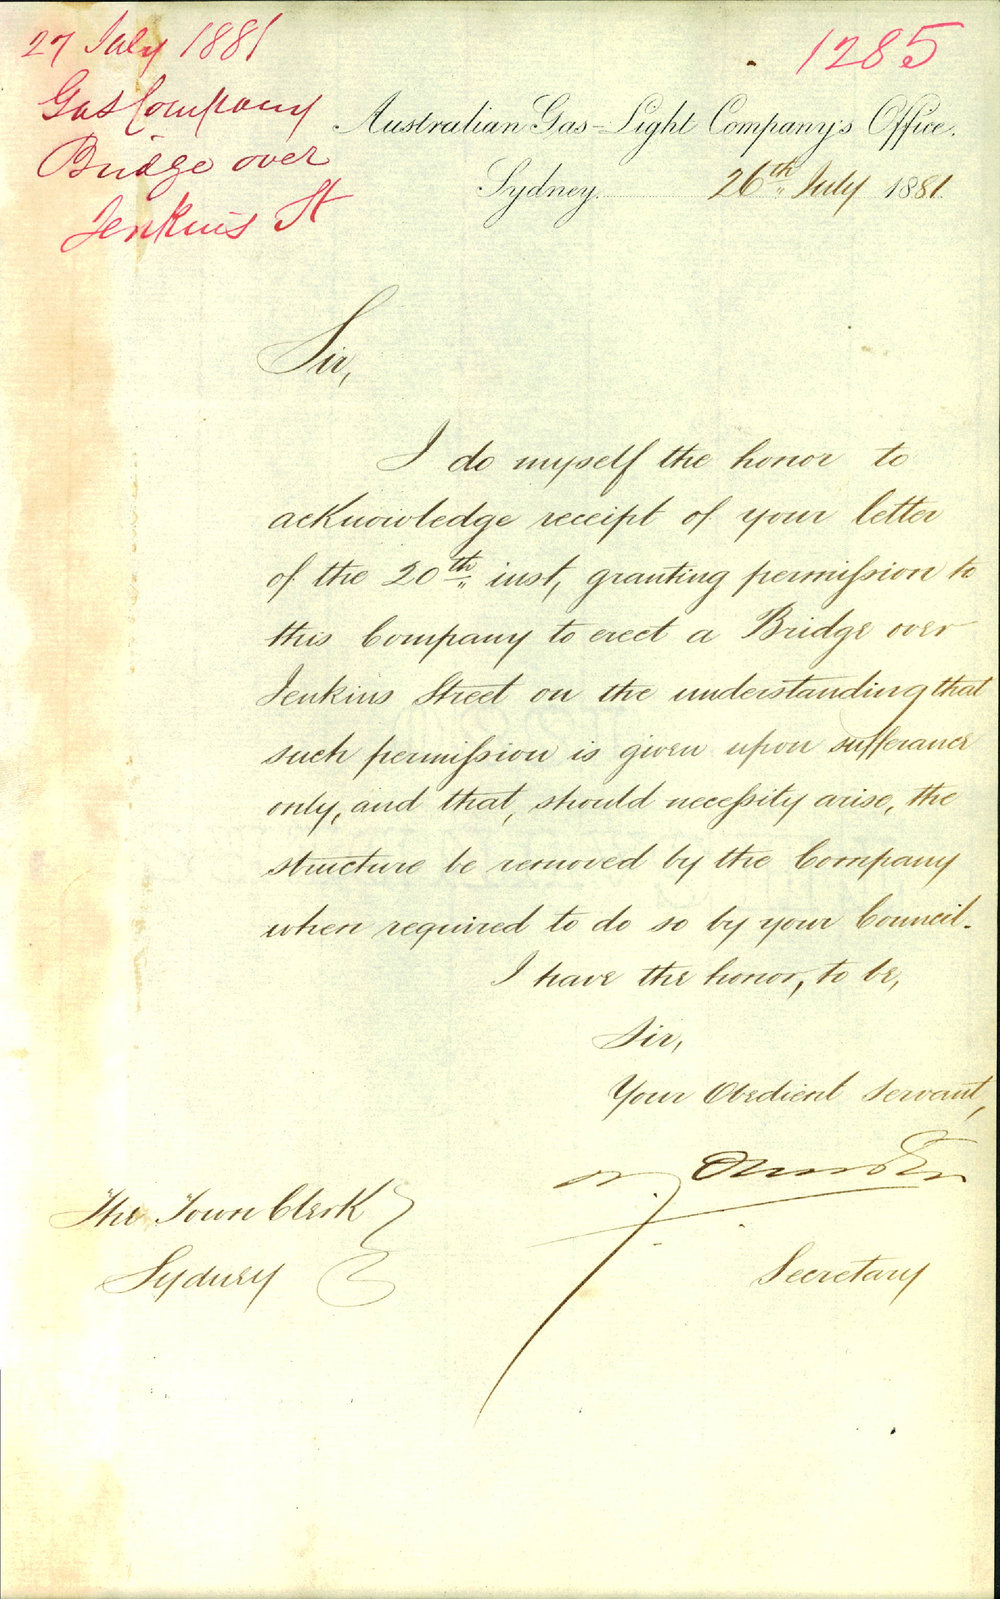 27 July 1881
1285
Gas Company
Bridge over
Jenkins St
Australian Gas-Light Company's Office.
Sydney. 26th July 1881.
Sir,
I do myself the honor to
acknowledge receipt of your letter
of the 20th inst, granting permission to
this Company to erect a Bridge over
Jenkins Street on the understanding that
such permission is given upon sufferance
only, and that, should necessity arise, the
structure be removed by the Company
when required to do so by your Council.
I have the honor, to be,
Sir,
Your Obedient servant,
The Town Clerk
Sydney
Secretary